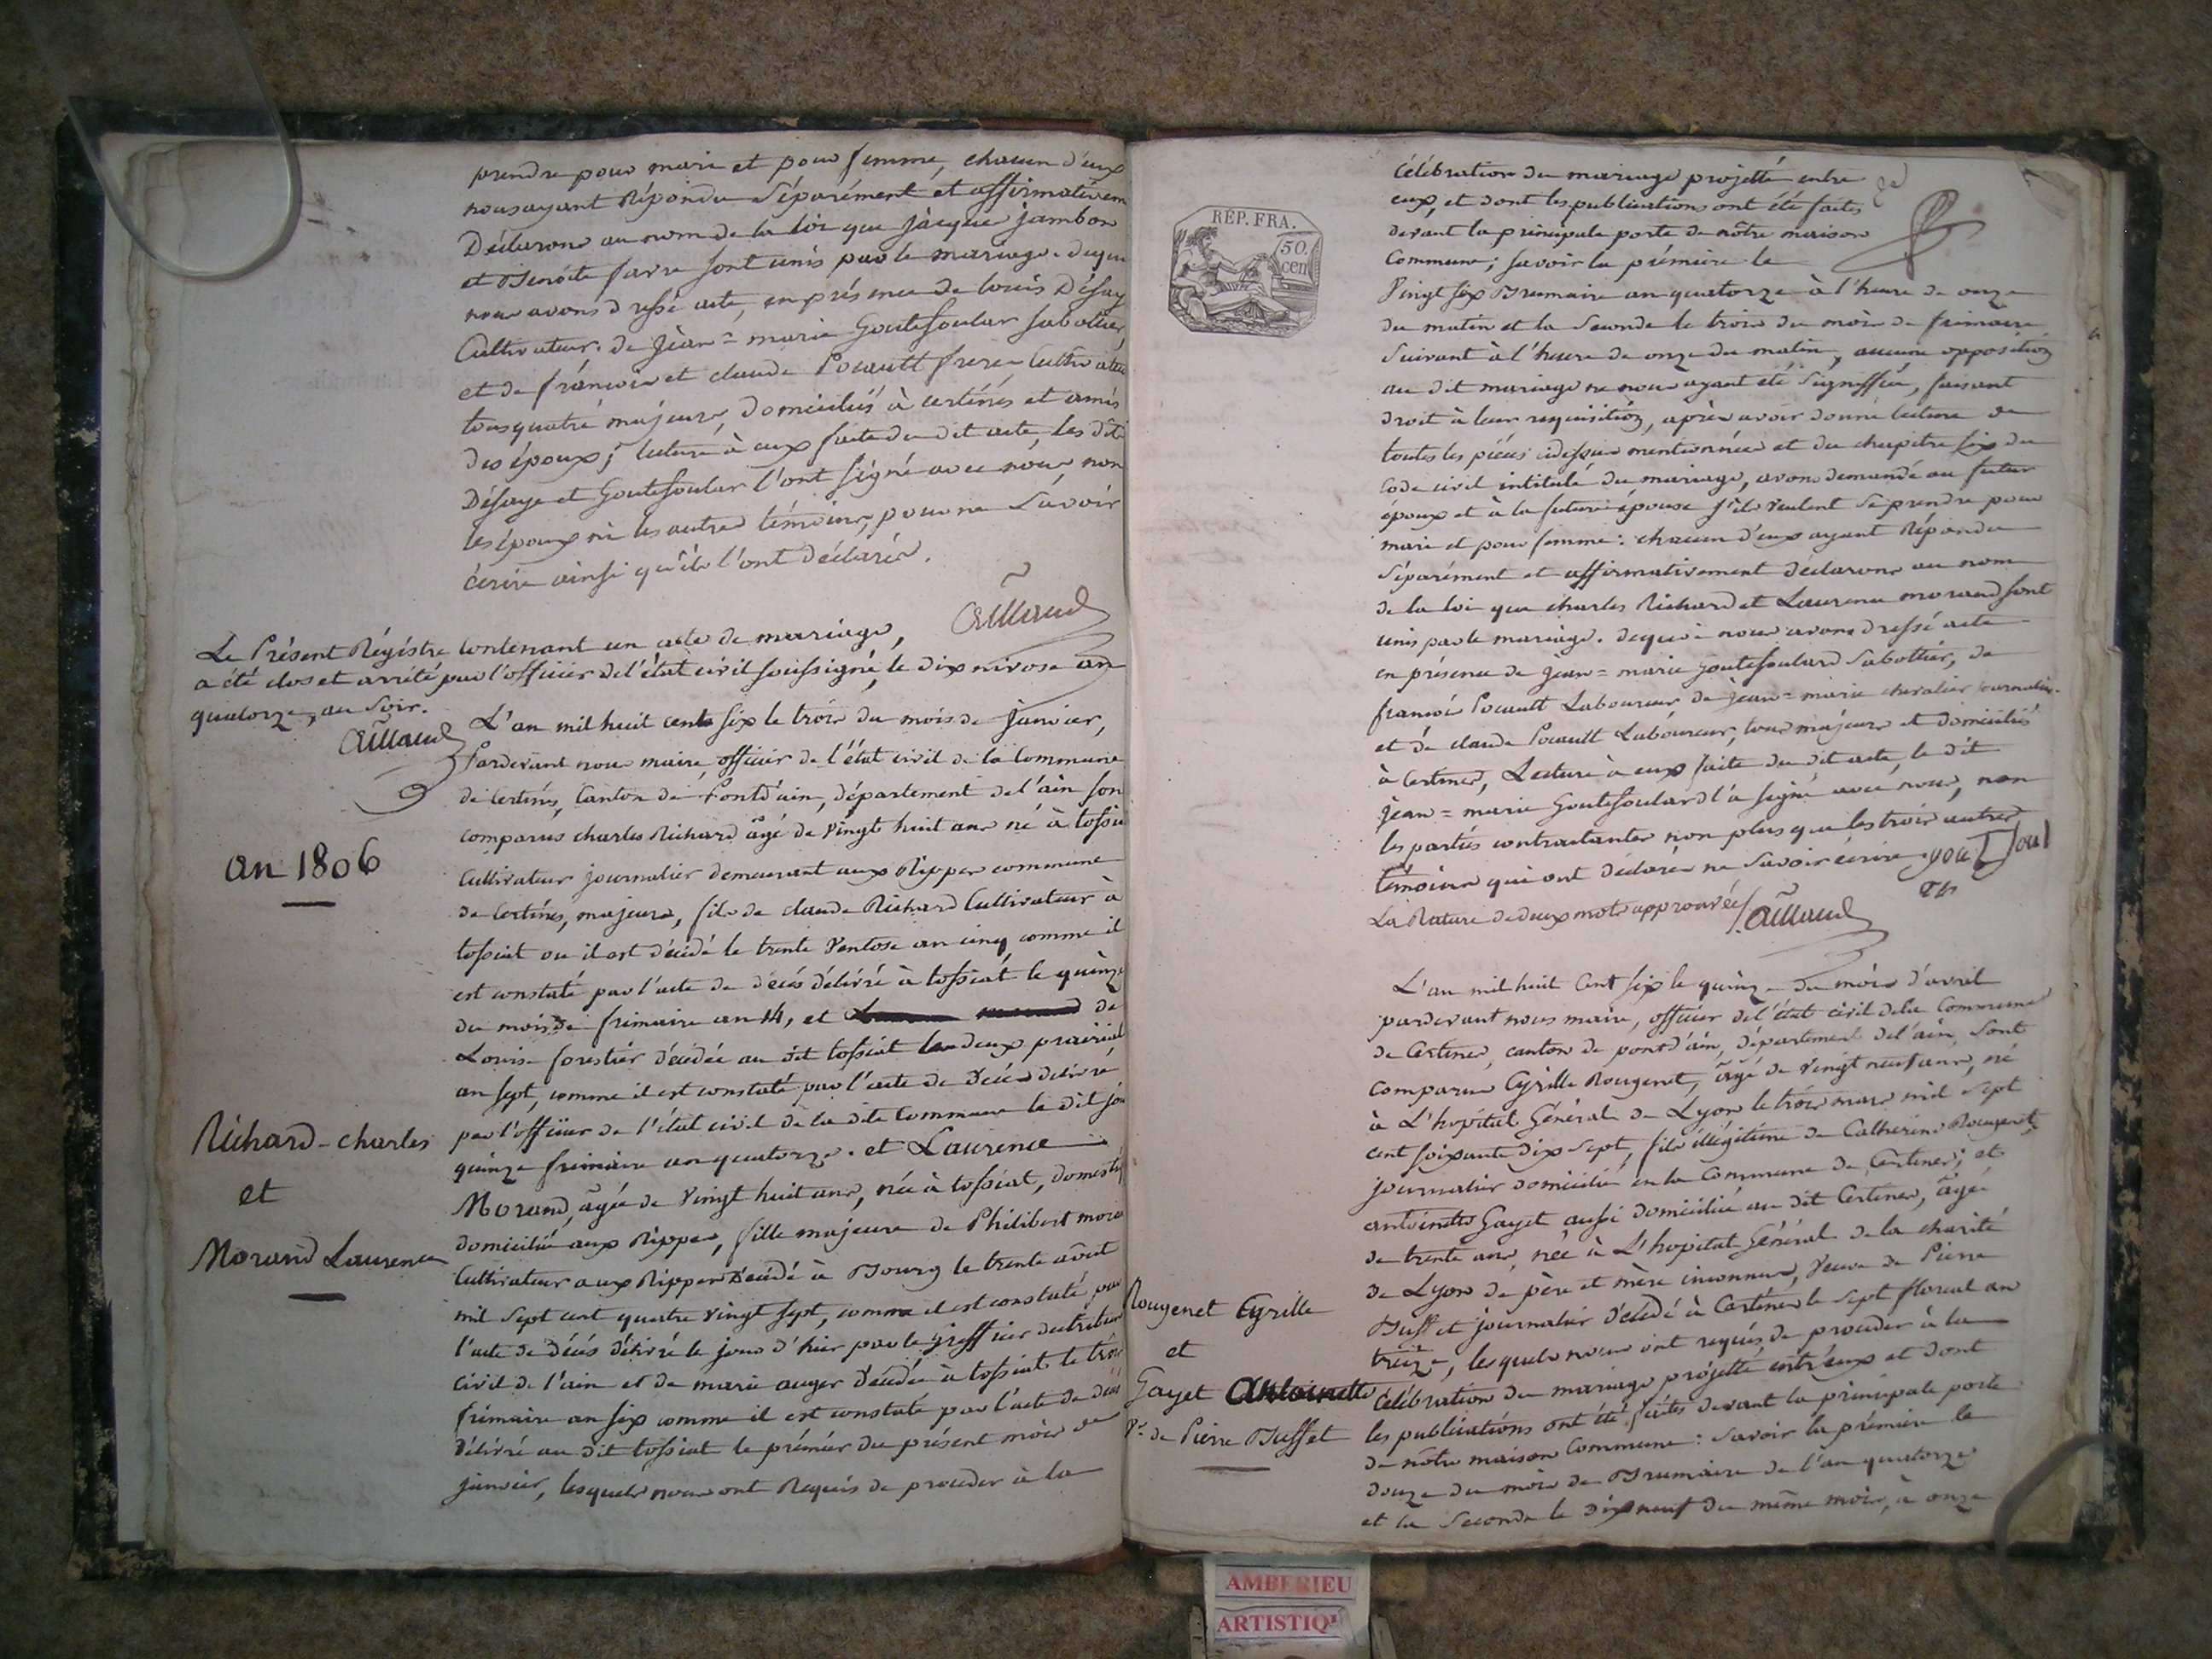 prendre pour mari et pour femme, chacun d'eux
nous ayant Répondu Séparément et affirmativem
Déclarons au nom de la loi que jàcque jambon
et Benoite favre sont unis par le mariage. duquel
nous avons dressé acte, en présence de louis Désay
Cultivateur. de Jean=marie Goutesoular sabotier,
et de françois et claude Pocault freres Cultivateu
tous quatre majeurs, domiciliés à certines et amis
des époux; lecture à eux faite du dit acte, les dits
Désaye et Goutesoular l'ont signé avec nous non
les époux ni les autres témoins, pour ne savoir
écrire ainsi qu'ils l'ont déclarés.
aillaud
Le Présent Régistre Contenant un acte de mariage,
a été clos et arrété par l'officier de l'état civil soussigné, le dix nivose an
quatorze, au soir.
aillaud
L'an mil huit cents six le trois du mois de janvier,
Pardevant nous maire, officier de l'état civil de la Commune
de Certines, Canton de Pontd'ain, département de l'ain son
comparus charles Richard âgé de vingt huit ans né à tossia
Cultivateur journalier demeurant aux Rippes commune
de Certines, majeurs, fils de claude Richard Cultivateur à
tossiat ou il est décédé le trente ventose an cinq, comme il
est constaté par l'acte de décés délivré à tossiat le quinze
du mois de frimaire an 14, et de
Louise forestier décédée au dit tossiat le deux prairial
an sept, comme il est constaté par l'acte de décés delivré
par l'officier de l'état civil de la dite Commune le dit jou
quinze frimaire an quatorze. et Laurence
Morand, agée de vingt huit ans, née à tossiat, domestiq
domiciliée aux Rippes, fille majeure de Philibert mora
Cultivateur aux Rippes décédé à Bourg le trente août
mil sept cent quatre vingt sept, comme il est constaté par
l'acte de décés délivré le jour d'hier par le greffier du tribun
civil de l'ain et de marie auger décédée à tossiat le trois
frimaire an six comme il est constaté par l'acte de décés
délivré au dit tossiat le prémier du présent mois de
janvier, lesquels nous ont Réquis de proceder à la
an 1806
Richard-charles
et
Morand Laurence
RÉP. FRA.
50.
cen
Célébration du mariage projetté entre
eux, et dont les publications ont été faites
devant la principale porte de nôtre maison
Commune; savoir la prémiere le
Vingt six Brumaire an quatorze à l'heure de onze
du matin et la seconde le trois du mois de frimaire
suivant à l'heure de onze du matin, aucune opposition
au dit mariage ne nous ayant été signiffiée, faisant
droit à leur requisition, après avoir donné lecture de
toutes les piéces cidessus mentionnées et du chapitre six du
Code civil intitulé du mariage, avons demandé au futur
époux et à la future épouse s'ils veulent se prendre pour
mari et pour femme: chacun d'eux ayant Répondu
séparément et affirmativement declarons au nom
de la loi que charles Richard et Laurence morand sont
unis par le mariage. dequoi nous avons dressé acte
en présence de jean=marie goutesoulard sabottier, de
françois Pocault Laboureur de jean=marie chevalier journalier.
et de claude Pocault Laboureur, tous majeurs et domiciliés
à Certines, Lecture à eux faite du dit acte, le dit
jean=marie Goutesoulard l'a signé avec nous, non
les parties contractantes non plus que les trois autres
témoins qui ont déclarés ne savoir écrire
La Rature de deux mots approuvée
aillaud
L'an mil huit Cent six le quinze du mois d'avril
pardevant nous maire, officier de l'état civil de la Commune
de Certines, canton de pont d'ain, département de l'ain, sont
comparus Cyrille Rougenet, âgé de vingt neuf ans, né
à L'hopital Général de Lyon le trois mars mil sept
cent soixante dix sept, fils illégitime de Catherine Rougenet,
journalier domicilié en la Commune de Certines; et
antoinette Gayet aussi domiciliée au dit Certines, âgée
de trente ans, née à L'hopital Général de la charité
de Lyon de père et mère inconnus, veuve de Pierre
Buffet journalier décédé à Certines le sept floreal an
treize, lesquels nous ont requis de proceder à la
Célébration du mariage projetté entr'eux et dont
les publications ont été faites devant la principale porte
de nôtre maison Commune: savoir la prémiere le
douze du mois de Brumaire de l'an quatorze
et la seconde le dix neuf du même mois, à onze
Rougenet Cyrille
et
Gayet Antoinette
Ve. de Pierre Buffet
AMBERIEU
ARTISTIQ